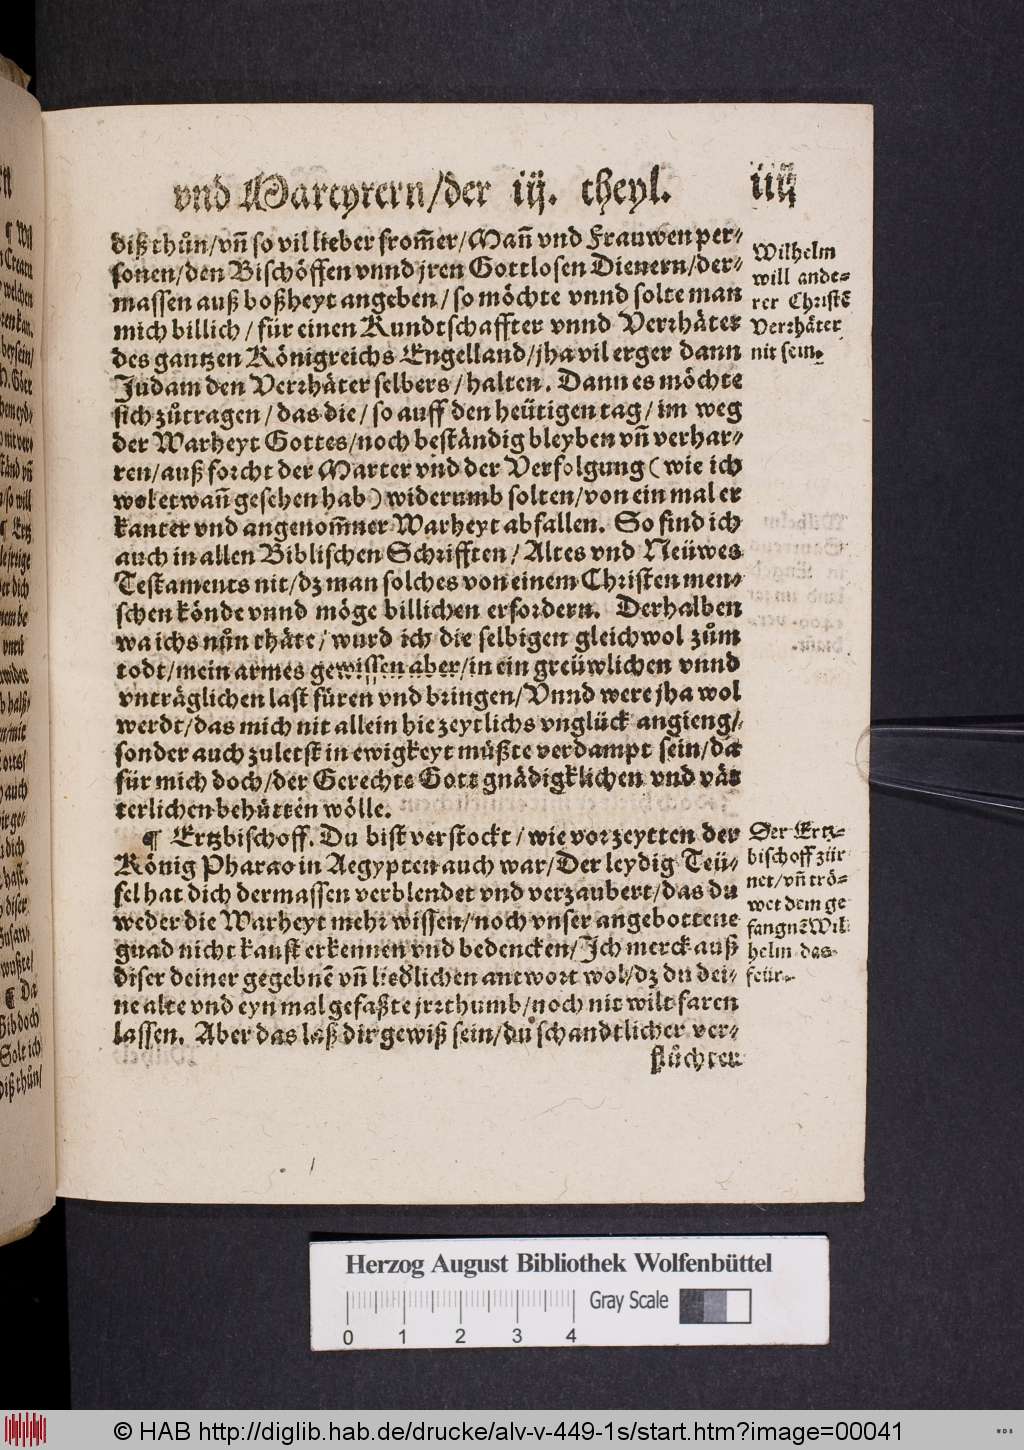 vnd Martyrern/der iij. theyl. iiij
diß thůn/vñ so vil lieber from̃er/Mañ vnd Frauwen per-
sonen/den Bischöffen vnnd jren Gottlosen Dienern/der-
massen auß boßheyt angeben/so möchte vnnd solte man
mich billich/für einen Kundtschaffter vnnd Verrhäter
des gantzen Königreichs Engelland/jha vil erger dann
Judam den Verrhäter selbers/halten. Dann es möchte
sich zůtragen/das die/so auff den heütigen tag/im weg
der Warheyt Gottes/noch beständig bleyben vñ verhar-
ren/auß forcht der Marter vnd der Verfolgung (wie ich
wol etwañ gesehen hab) widerumb solten/von ein mal er
kanter vnd angenom̃ner Warheyt abfallen. So find ich
auch in allen Biblischen Schrifften/Altes vnd Neüwes
Testaments nit/dz man solches von einem Christen men-
schen könde vnnd möge billichen erfordern. Derhalben
wa ichs nůn thäte/wurd ich die selbigen gleichwol zům
todt/mein armes gewissen aber/in ein greüwlichen vnnd
vnträglichen last füren vnd bringen/Vnnd were jha wol
werdt/das mich nit allein hie zeytlichs vnglück angieng/
sonder auch zuletst in ewigkeyt müßte verdampt sein/da
für mich doch/der Gerechte Gott gnädigklichen vnd vät
terlichen behütten wölle.
¶ Ertzbischoff. Du bist verstockt/wie vorzeytten der
König Pharao in Aegypten auch war/Der leydig Teü-
fel hat dich dermassen verblendet vnd verzaubert/das du
weder die Warheyt mehr wissen/noch vnser angebottene
gnad nicht kanst erkennen vnd bedencken/Ich merck auß
diser deiner gegebnẽ vñ liedlichen antwort wol/dz du dei-
ne alte vnd eyn mal gefaßte jrrthumb/noch nit wilt faren
lassen. Aber das laß dir gewiß sein/du schandtlicher ver-
flůchter
Wilhelm
will ande-
rer Christẽ
Verrhäter
nit sein.
Der Ertz-
bischoff zür
net/vñ trö-
wet dem ge
fangnẽ Wil
helm das
feür.
Herzog August Bibliothek Wolfenbüttel
Gray Scale
0 1 2 3 4
© HAB http://diglib.hab.de/drucke/alv-v-449-1s/start.htm?image=00041